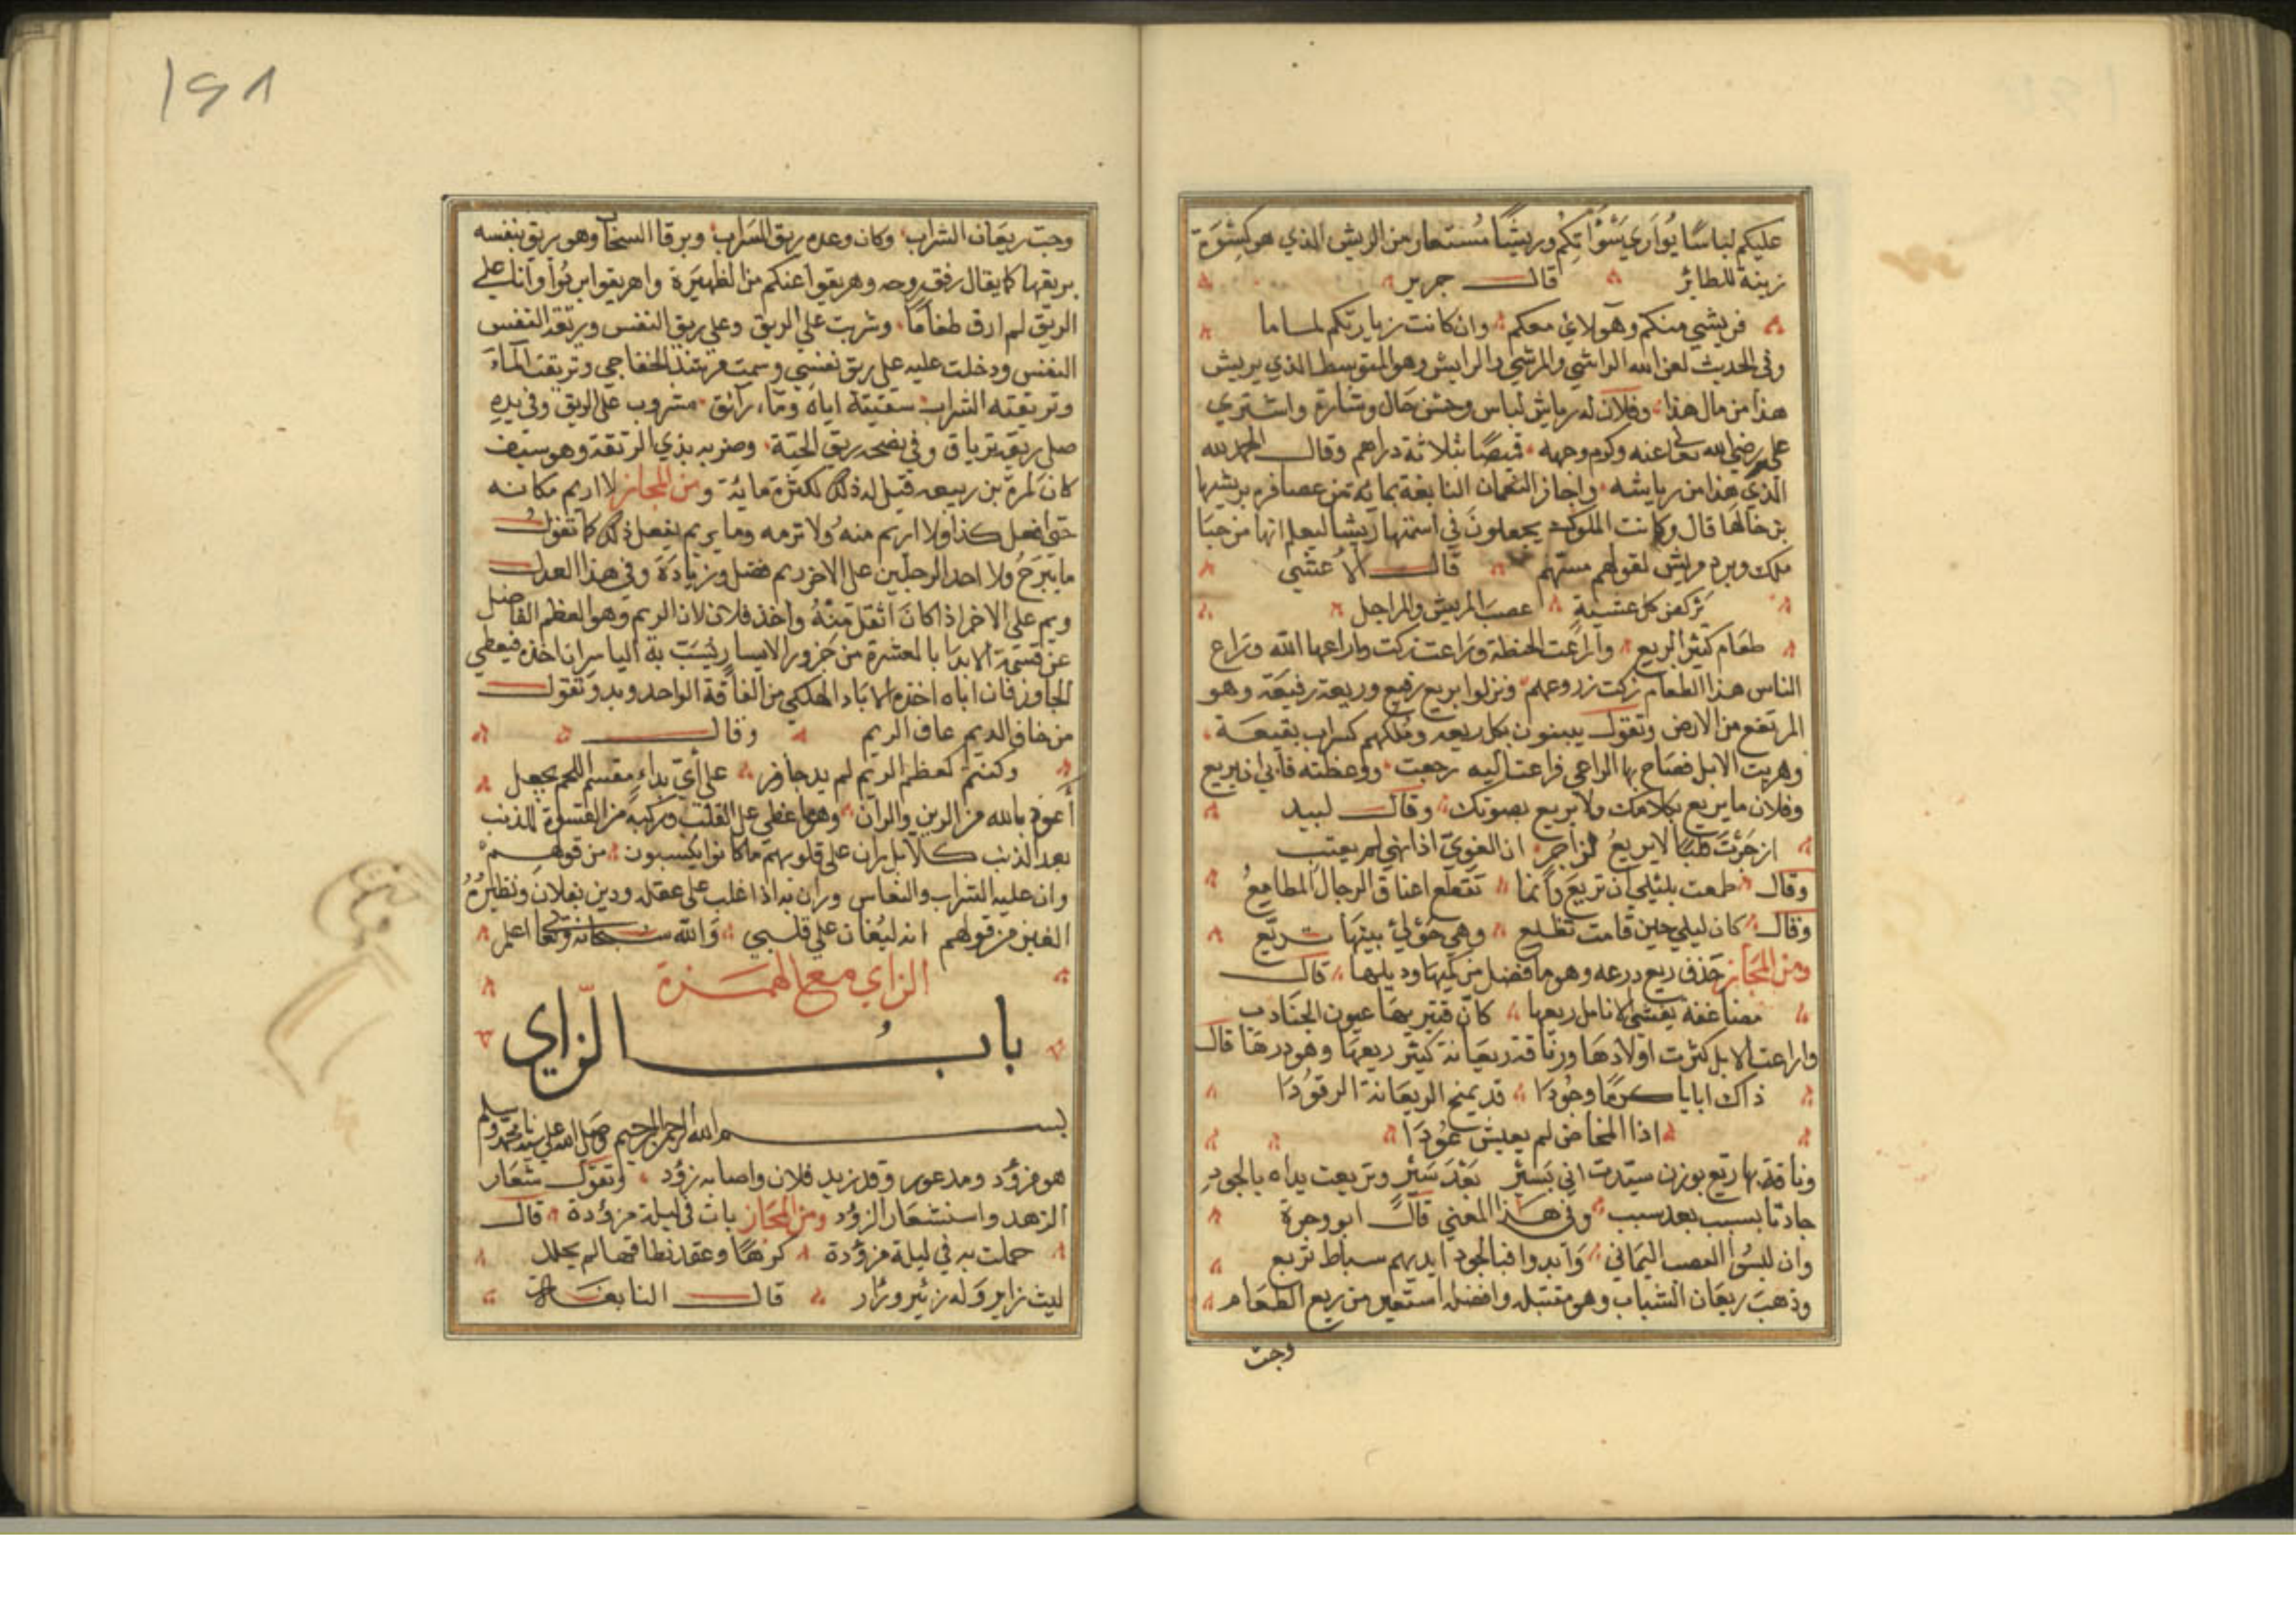 عليكم لباسًا يُوَاري سَوْآتكم وريشًا مُستعار من الريش الذي هو كسْوَة
زينة للطائر قال جرير
فريشي منكم وهوَلاي معكم وان كانت زيارتكم لماما
وفي الحديث لعن الله الراشي والمرتشي والرايش وهو المتوسط الذي يريش
هذا من مال هذا وفلان له رياش لباس وحسن حال وشارة واشتري
علي رضي الله تعالى عنه وكرم وجهه قميصًا بثلاثة دراهم وقال الحمد لله
الذي هذا من رياشه واجاز النعمان النابغة بمائة من عصافره بريشها
قال وكانت الملوك يجعلون في اسنمتها ريشا ليعلم انها من حبا
ملك وبرد مريش لقولهم مسهم قال الاعشي
يركض كل عشية عصب المريش والمراجل
طعام كثير الريع وأراعت الحنطة وراعت زكت واراعها الله وراع
الناس هذا الطعام زكت زروعهم ونزلوا بريع رفيع وريعة رفيعة وهو
المرتفع من الارض وتقول يبنون بكل ريعه وملكهم كسراب بقيعة
وهربت الابل فصاح بها الراعي فراعت اليه رجعت ووعظته فأبي ان يريع
وفلان ما يريع بكلامك ولا يريع بصوتك وقال لبيد
لا يريعُ لزاجر ان الغويّ اذا نهي لم يعتب
وقال طمعت بليلي أن تريع وانما تقطع اعناق الرجال المطامعُ
وقال كان ليلي حين قامت تطلع وهي حوالي بيتها تريع
ومن المجاز حذف ريع درعه وهو ما فضل من كميها وذيلها قال
مضاعفة يغشي الانامل ريعها كان قتيرها عيون الجنادب
واراعت الابل كثرت اولادها وناقة ريعانة كثير ريعها وهو درها قال
ذاك ابايا كرمًا وجُودَا قد يمنح الريعانة الرفودَا
اذا المخاض لم يعيش عُودَا
وناقة لها ريع بوزن سيّد تأتي بسَير بَعْدَ سَيْر وتريعت يداه بالجود
جادتا بسبب بعد سبب وفي هذا المعني قال ابو وجزة
وان لبسُوا العصب اليماني وَابدوا فبالجود ايديهم سباط تريع
وذهبَ ريعان الشباب وهو مقتبله وافضله استعير من ريع الطعام
وجت
١٥٨
وجت ريعَان الشراب وكان وعده ريق السَراب وبرقا السحاب وهو يريق بنفسه
يريقها كما يقال رفق روحه وهريقوا عنكم من الظهيرة واهريقوا وأنا علي
الريق لم اذق طعامًا وشربت علي الريق وعلي ريق النفس وريقة النفس
النفس ودخلت عليه علي ريق نفسي وسمعت مرشد الخفاجي وتريقت الماءَ
وتريقته الشراب سقيته اياه ومَاء رائق مشروب علي الريق وفي يده
صل ريقه ترياق وفي نصحه ريق الحيّة وضربه بذي الريقة وهو سيف
كان لمرة بن ربيعه قيل له ذلك لكثرة مائه ومن المجاز لا اريم مكانه
حتي افعل كذا ولا اريم منه ولا ترمه وما يريم يفعل ذلك كما تقول
ما يبرحُ ولأحد الرجلين علي الاخر ريم فضل وزيادة وفي هذا العدل
ريم علي الاخر اذا كان اثقل منهُ واخذ فلان الريم وهو العظم الفاضل
عن قسمة الابدا بالعشرة من جزور الايسار
من خاف الديم عاف الريم وقال
وكنتم كعظم الريم لم يدر جازر علي أيّ بداءِ مقسم اللحم يجعل
أعوذ بالله من الرين والران وهو ما غطي علي القلب وركبه من القسوة للذنب
بعد الذنب كلا بل ران علي قلوبهم ما كانوا يكسبون من قولهم
وان عليه الشراب والنعاس وران به اذا غلب علي عقله ورين بفلان ونظيرُهُ
الغين من قولهم انه ليُغان علي قلبي وَالله سبحانه وتعالي اعلم
الزاي مع الهمزة
باب الزّاي
بسم الله الرحمن الرحيم وصلي الله علي سيدنا محمد وسلم
هو مزؤد ومذعور وقد زيد فلان واصابه زؤد وتقول شعار
الزهد واستشعار الزؤد ومن المجاز بات في ليلة مزؤدة قال
حملت به في ليلة مزؤدة كرهًا وعقد نطاقها لم يحلل
ليث زاير وله زئير وزار قال النابغة